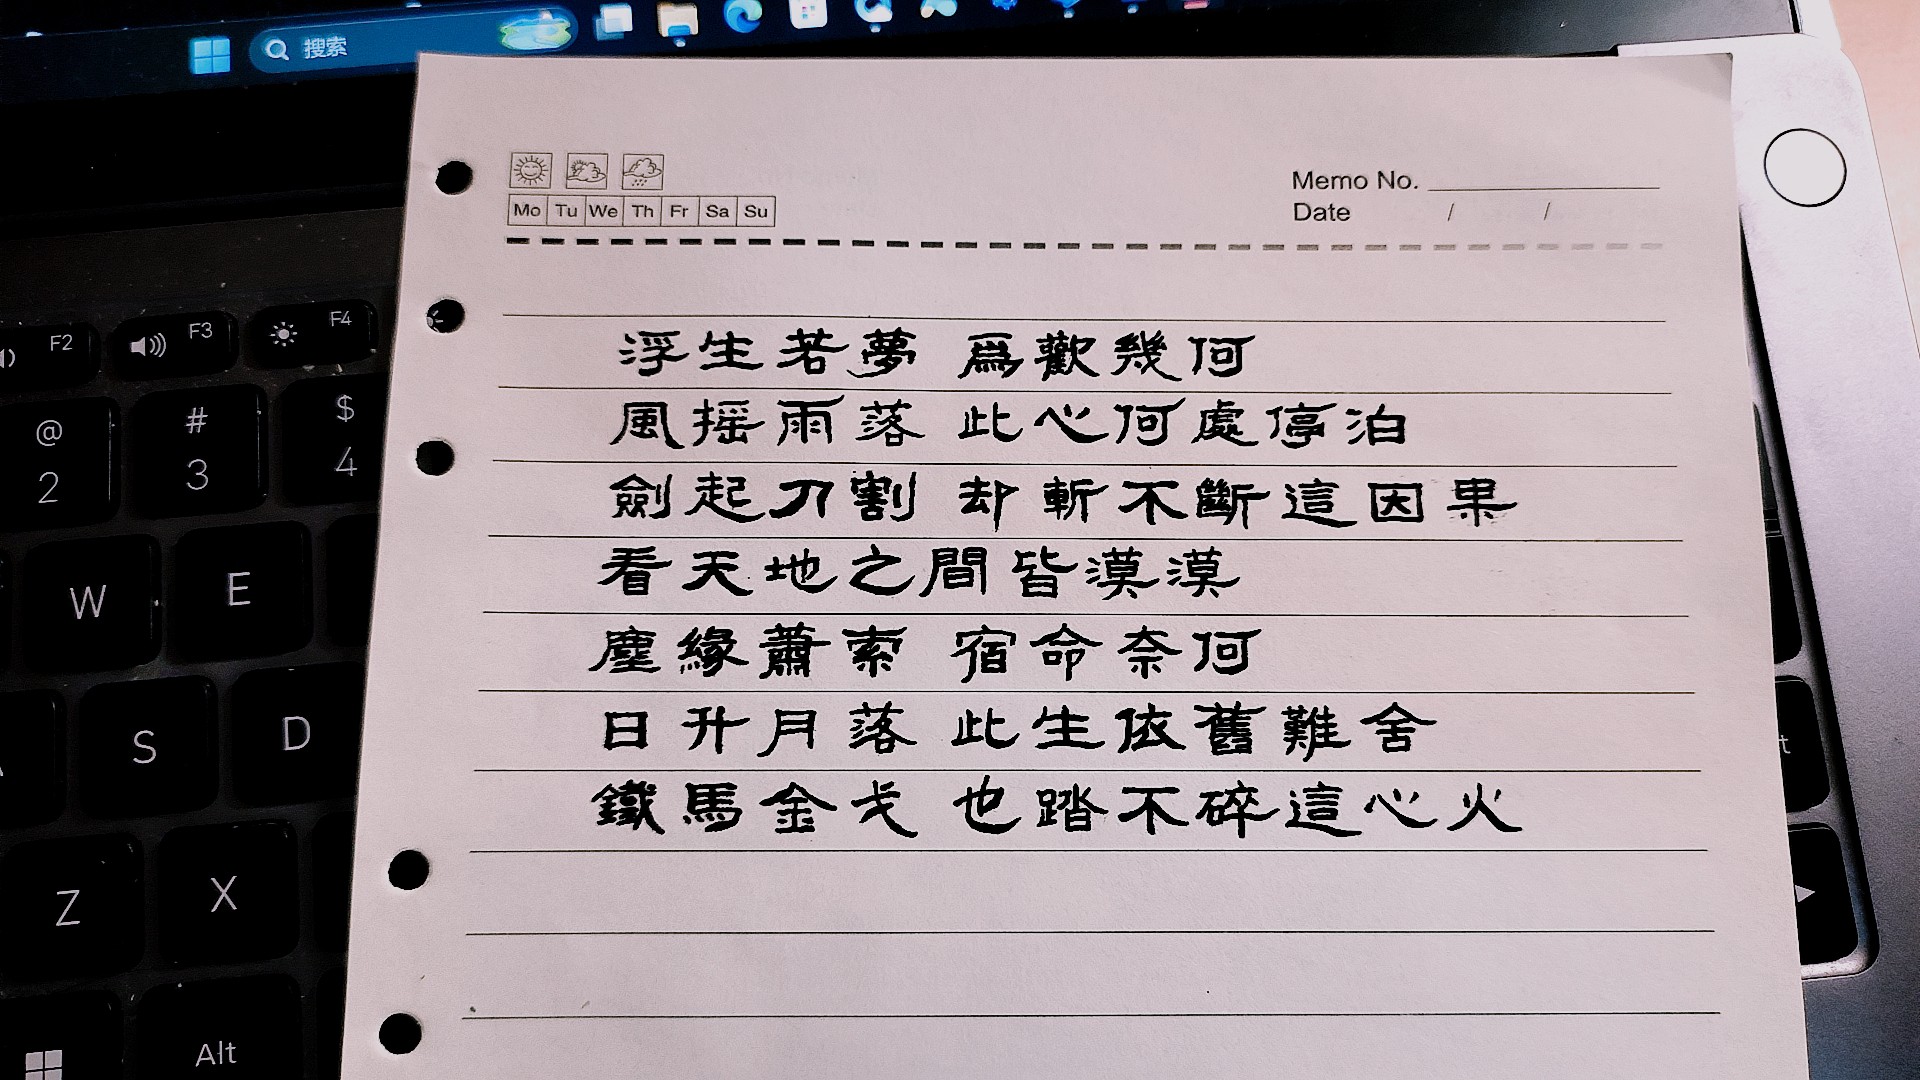 搜索
Memo No.
Mo Tu We Th Fr Sa Su
Date / /
浮生若夢 爲歡幾何
風摇雨落 此心何處停泊
劍起刀割 却斬不斷這因果
看天地之間皆漠漠
塵緣蕭索 宿命奈何
日升月落 此生依舊難舍
鐵馬金戈 也踏不碎這心火
F2 F3 F4
@ # $
2 3 4
W E
S D
Z X
Alt